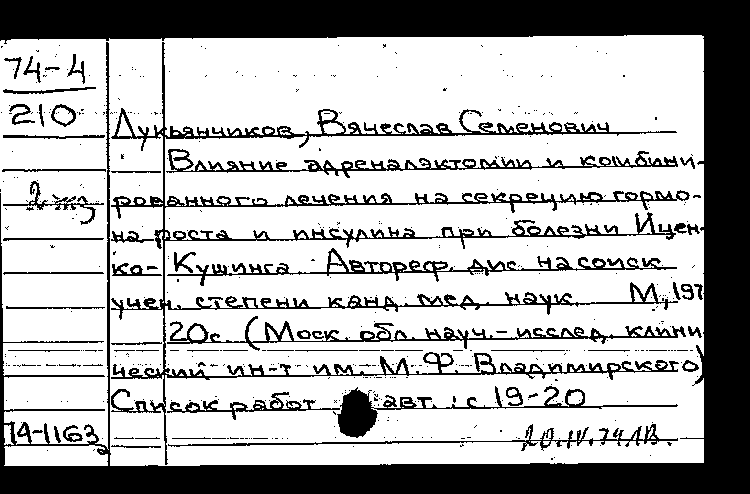 74-4
210
Лукьянчиков, Вячеслав Семенович
Влияние адреналэктомии и комбини-
рованного лечения на секрецию гормо-
на роста и инсулина при болезни Ицен-
ко- Кушинга. Автореф. дис. на соиск.
учен. степени канд. мед. наук. М., 197
20с. (Моск. обл. науч.-исслед. клини
ческий ин-т им. М.Ф. Владимирского)
Список работ авт.: с 19-20
74-1163
20.IV.74